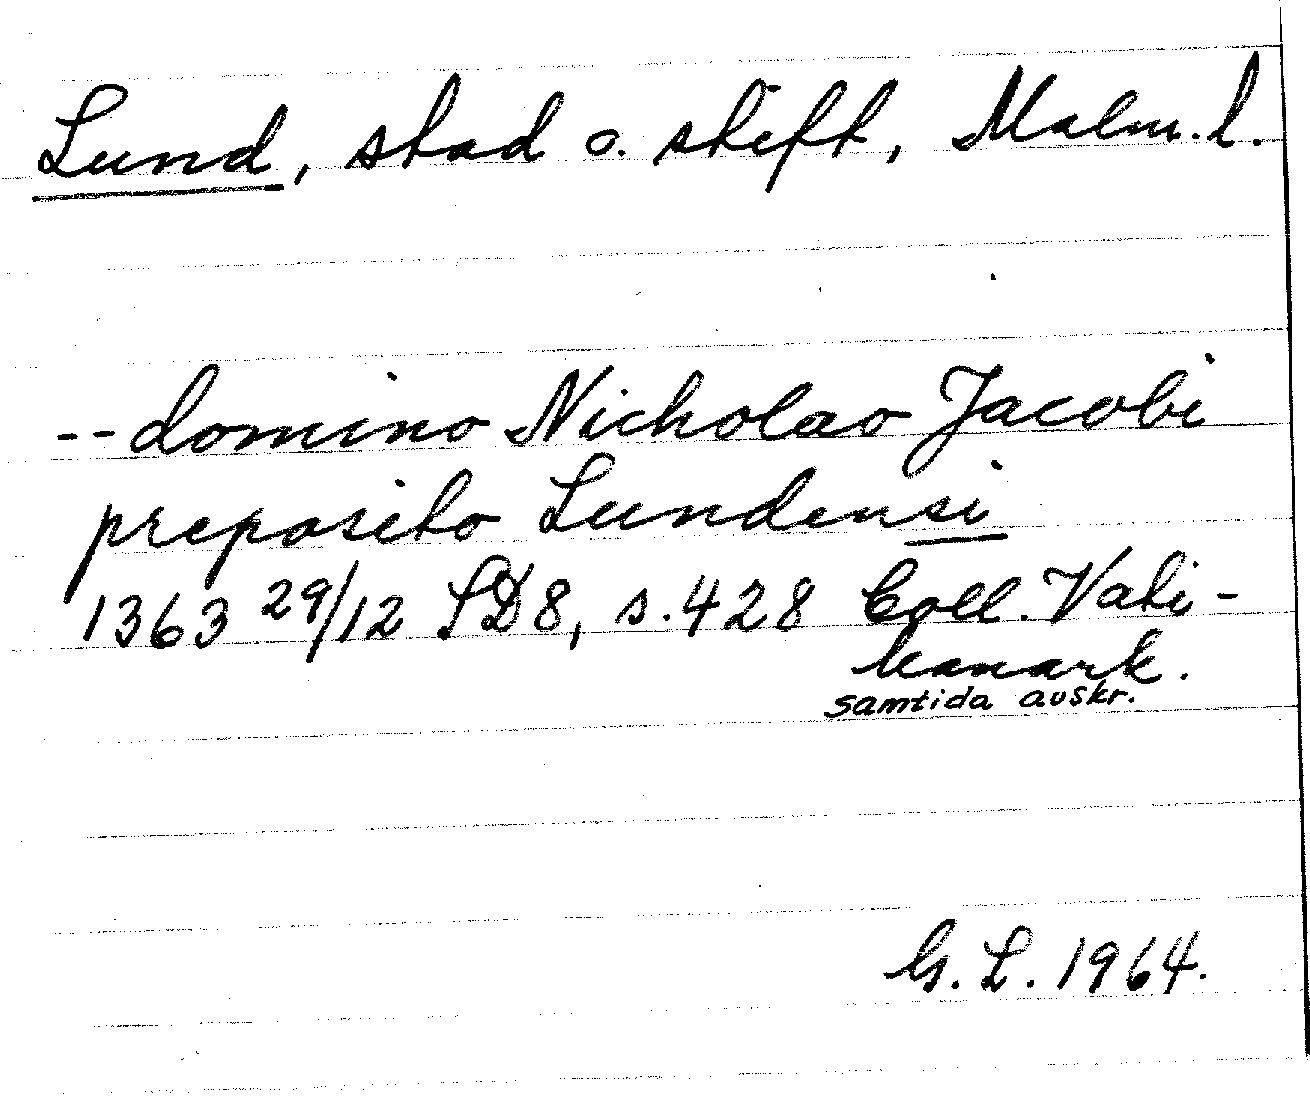 Lund, stad o. stift, Malm. l.
-- domino Nicholao Jacobi
preposito Lundensi
1363 29/12 SD8, s. 428 Coll. Vati-
kanark.
samtida avskr.
G. L. 1964.